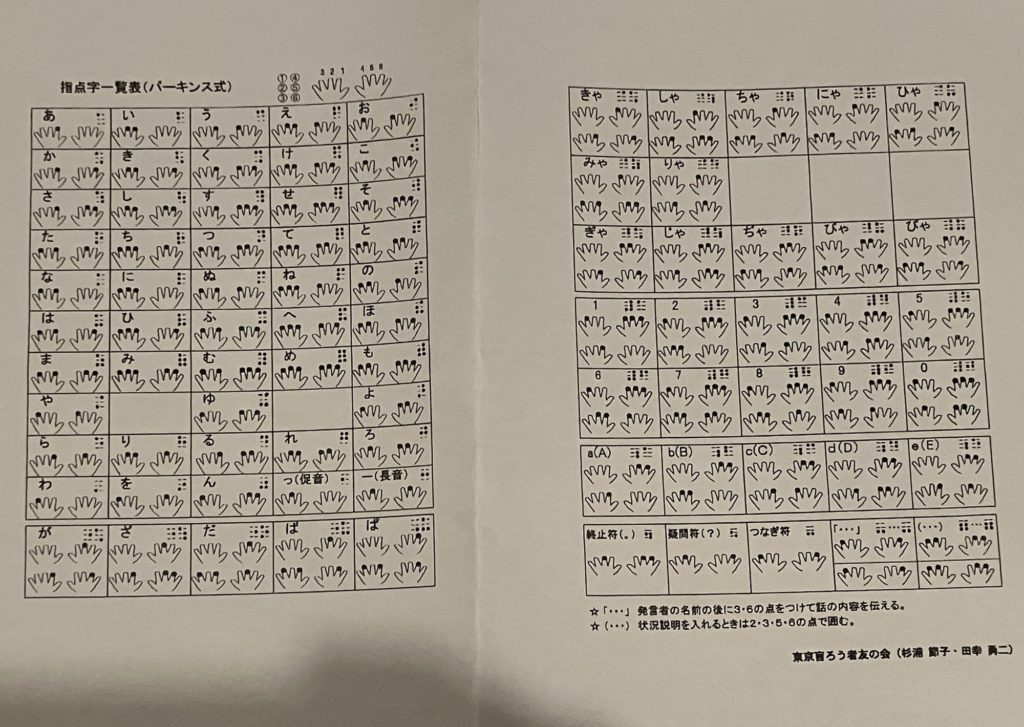 指点字一覧表(パーキンス式)
①④
②⑤
③⑥
3 2 1 4 5 6
あ い う え お
か き く け こ
さ し す せ そ
た ち つ て と
な に ぬ ね の
は ひ ふ へ ほ
ま み む め も
や ゆ よ
ら り る れ ろ
わ を ん っ(促音) ー(長音)
が ざ だ ば ぱ
きゃ しゃ ちゃ にゃ ひゃ
みゃ りゃ
ぎゃ じゃ ぢゃ びゃ ぴゃ
1 2 3 4 5
6 7 8 9 0
a(A) b(B) c(C) d(D) e(E)
終止符(。) 疑問符(?) つなぎ符 「・・・」 (・・・)
☆「・・・」 発言者の名前の後に3・6の点をつけて話の内容を伝える。
☆(・・・) 状況説明を入れるときは2・3・5・6の点で囲む。
東京盲ろう者友の会(杉浦 節子・田幸 勇二)